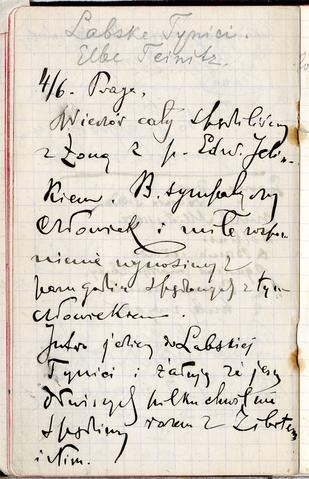 Labske Tynici.
Elbe Teinitz.
4/6. Praga,
Wieczór cały spędziliśmy
z Żoną z p. Edw. Jelin-
kiem. B. sympatyczny
człowiek i miłe wspo-
mnienie wynosimy z
paru godzin spędzonych z tym
człowiekiem.
Jutro jedziemy do Labskiej
Tynici i żałuję że
kilku chwil nie
spędzimy razem z
i Nim.